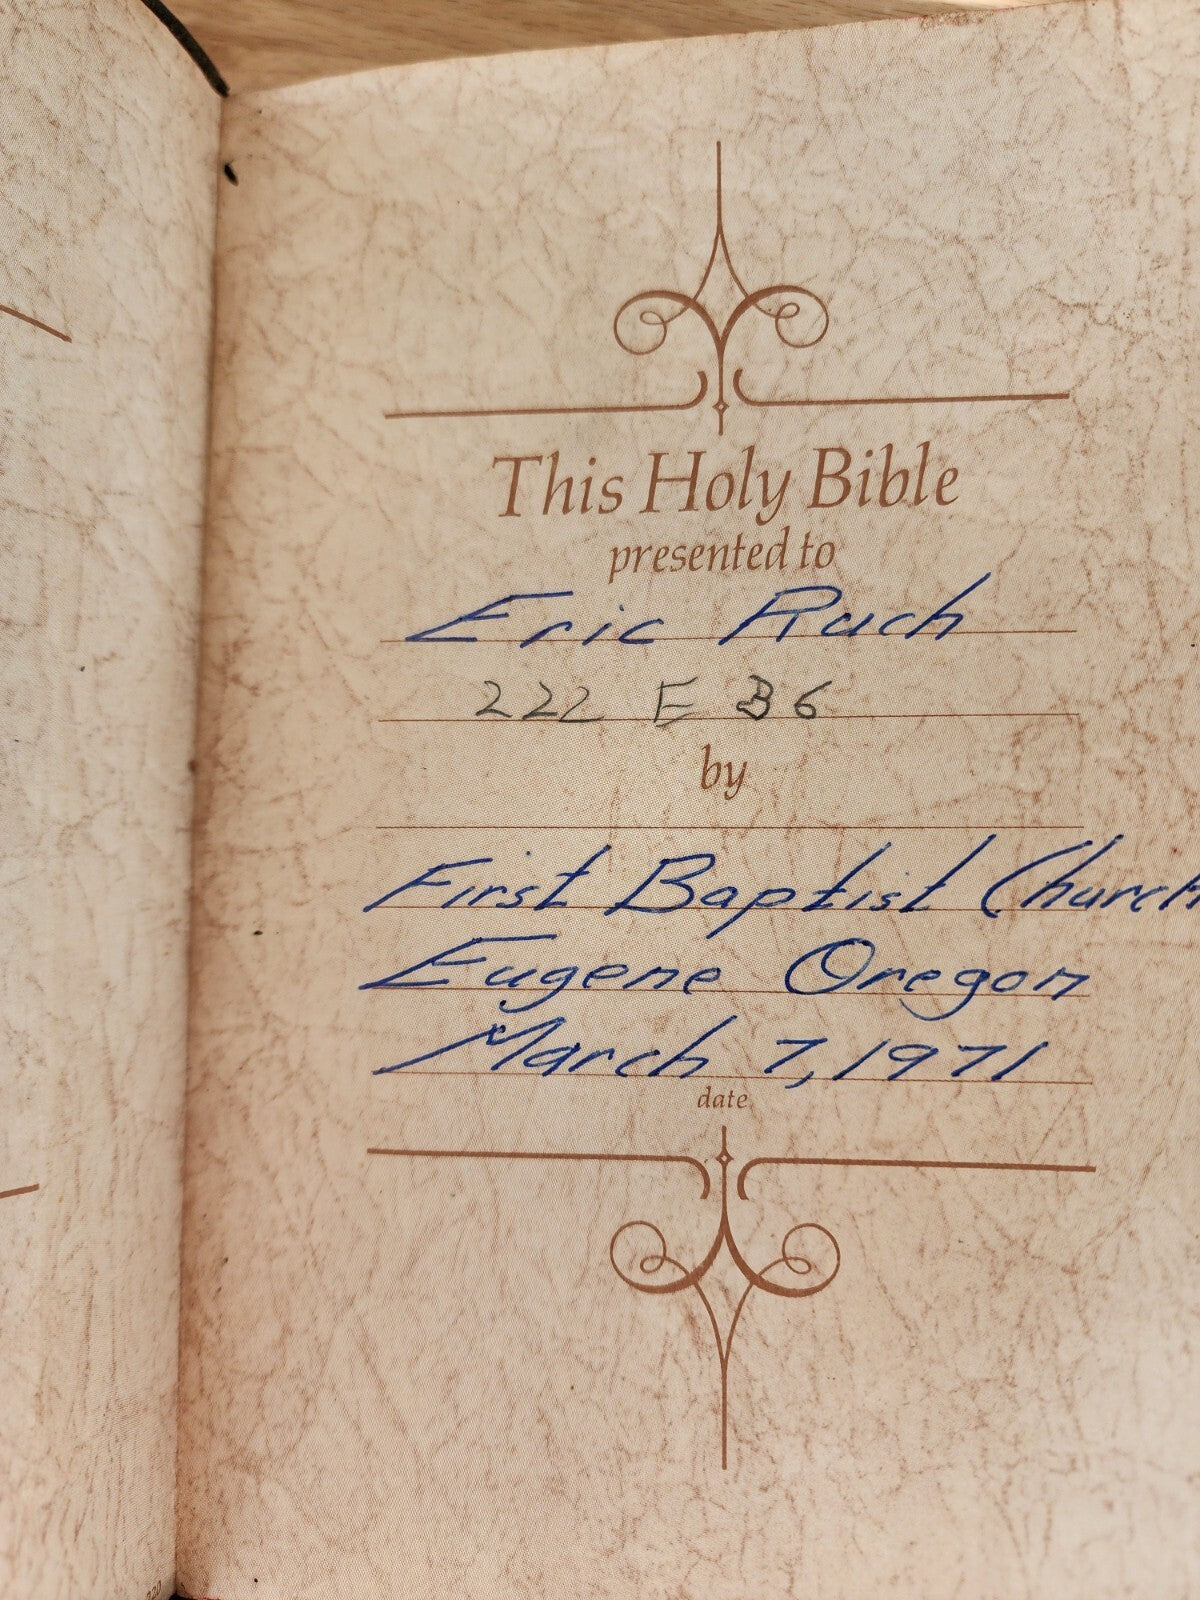 This Holy Bible
presented to
Eric Ruch
222 E B6
by
First Baptist Church
Eugene Oregon
March 7, 1971
date